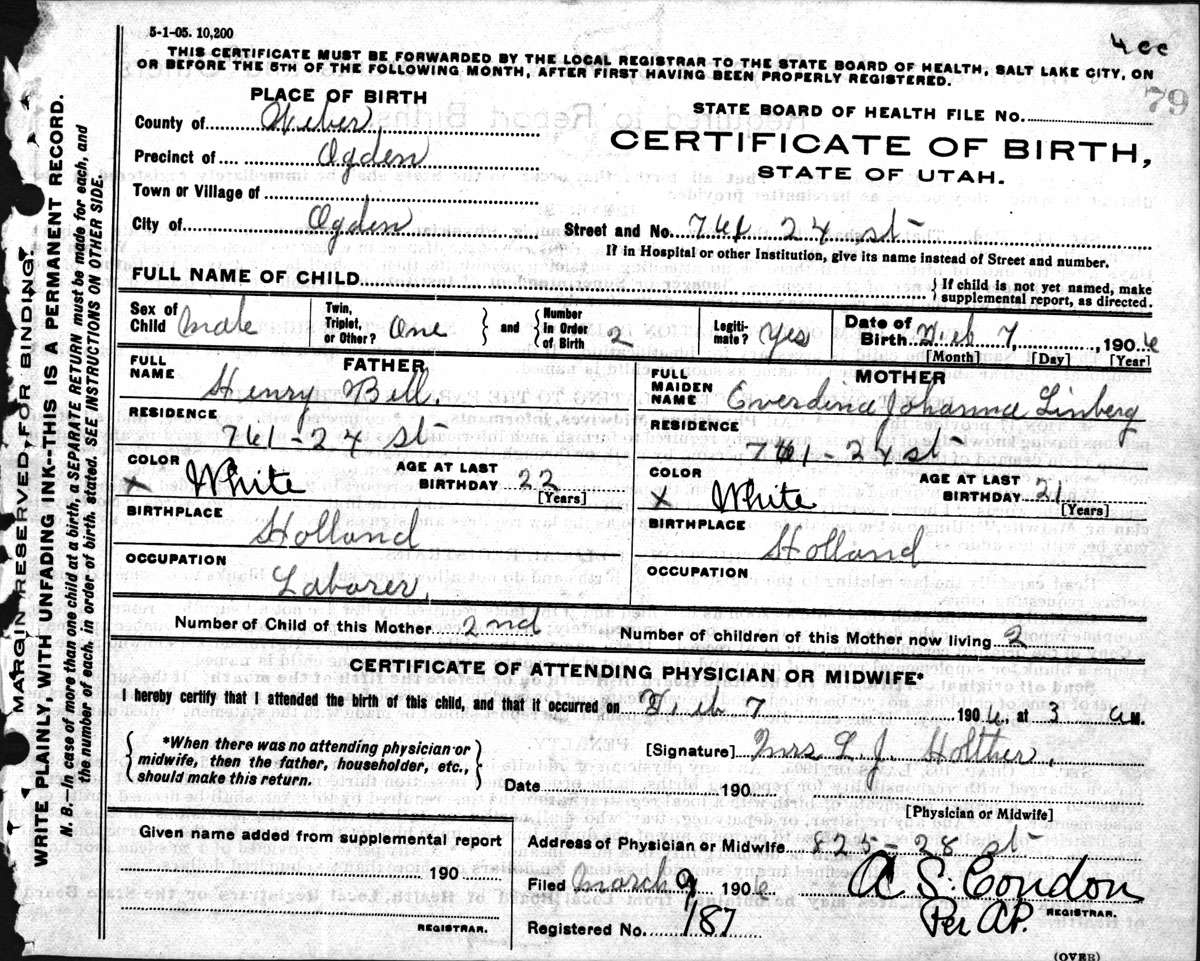 5-1-05. 10,200
THIS CERTIFICATE MUST BE FORWARDED BY THE LOCAL REGISTRAR TO THE STATE BOARD OF HEALTH, SALT LAKE CITY, ON
OR BEFORE THE 5TH OF THE FOLLOWING MONTH, AFTER FIRST HAVING BEEN PROPERLY REGISTERED.
79
PLACE OF BIRTH
STATE BOARD OF HEALTH FILE No.
County of Weber,
CERTIFICATE OF BIRTH,
Precinct of Ogden
STATE OF UTAH.
Town or Village of
City of Ogden
Street and No. 761 24 st
If in Hospital or other Institution, give its name instead of Street and number.
FULL NAME OF CHILD
If child is not yet named, make
supplemental report, as directed.
Sex of Child male
Twin, Triplet, or Other? One
and
Number in Order of Birth 2
Legitimate? Yes
Date of Birth Feb 7, 1906
[Month] [Day] [Year]
FATHER
FULL NAME Henry Bell
RESIDENCE
761-24 st
COLOR x White
AGE AT LAST BIRTHDAY 22
[Years]
BIRTHPLACE
Holland
OCCUPATION
Laborer,
MOTHER
FULL MAIDEN NAME Everdina Johanna Linberg
RESIDENCE
761-24 st
COLOR x White
AGE AT LAST BIRTHDAY 21
[Years]
BIRTHPLACE
Holland
OCCUPATION
Number of Child of this Mother 2nd
Number of children of this Mother now living 2
CERTIFICATE OF ATTENDING PHYSICIAN OR MIDWIFE*
I hereby certify that I attended the birth of this child, and that it occurred on Feb 7 1906, at 3 a M.
*When there was no attending physician or
midwife, then the father, householder, etc.,
should make this return.
[Signature] Mrs L. J. Holther,
Date 190
[Physician or Midwife]
Given name added from supplemental report
190
REGISTRAR.
Address of Physician or Midwife 825-28 st
Filed March 9 1906
A S. Condon
Per AP.
REGISTRAR.
Registered No. 187
(OVER)
MARGIN RESERVED FOR BINDING.
WRITE PLAINLY, WITH UNFADING INK--THIS IS A PERMANENT RECORD.
N. B.—In case of more than one child at a birth, a SEPARATE RETURN must be made for each, and
the number of each, in order of birth, stated. SEE INSTRUCTIONS ON OTHER SIDE.